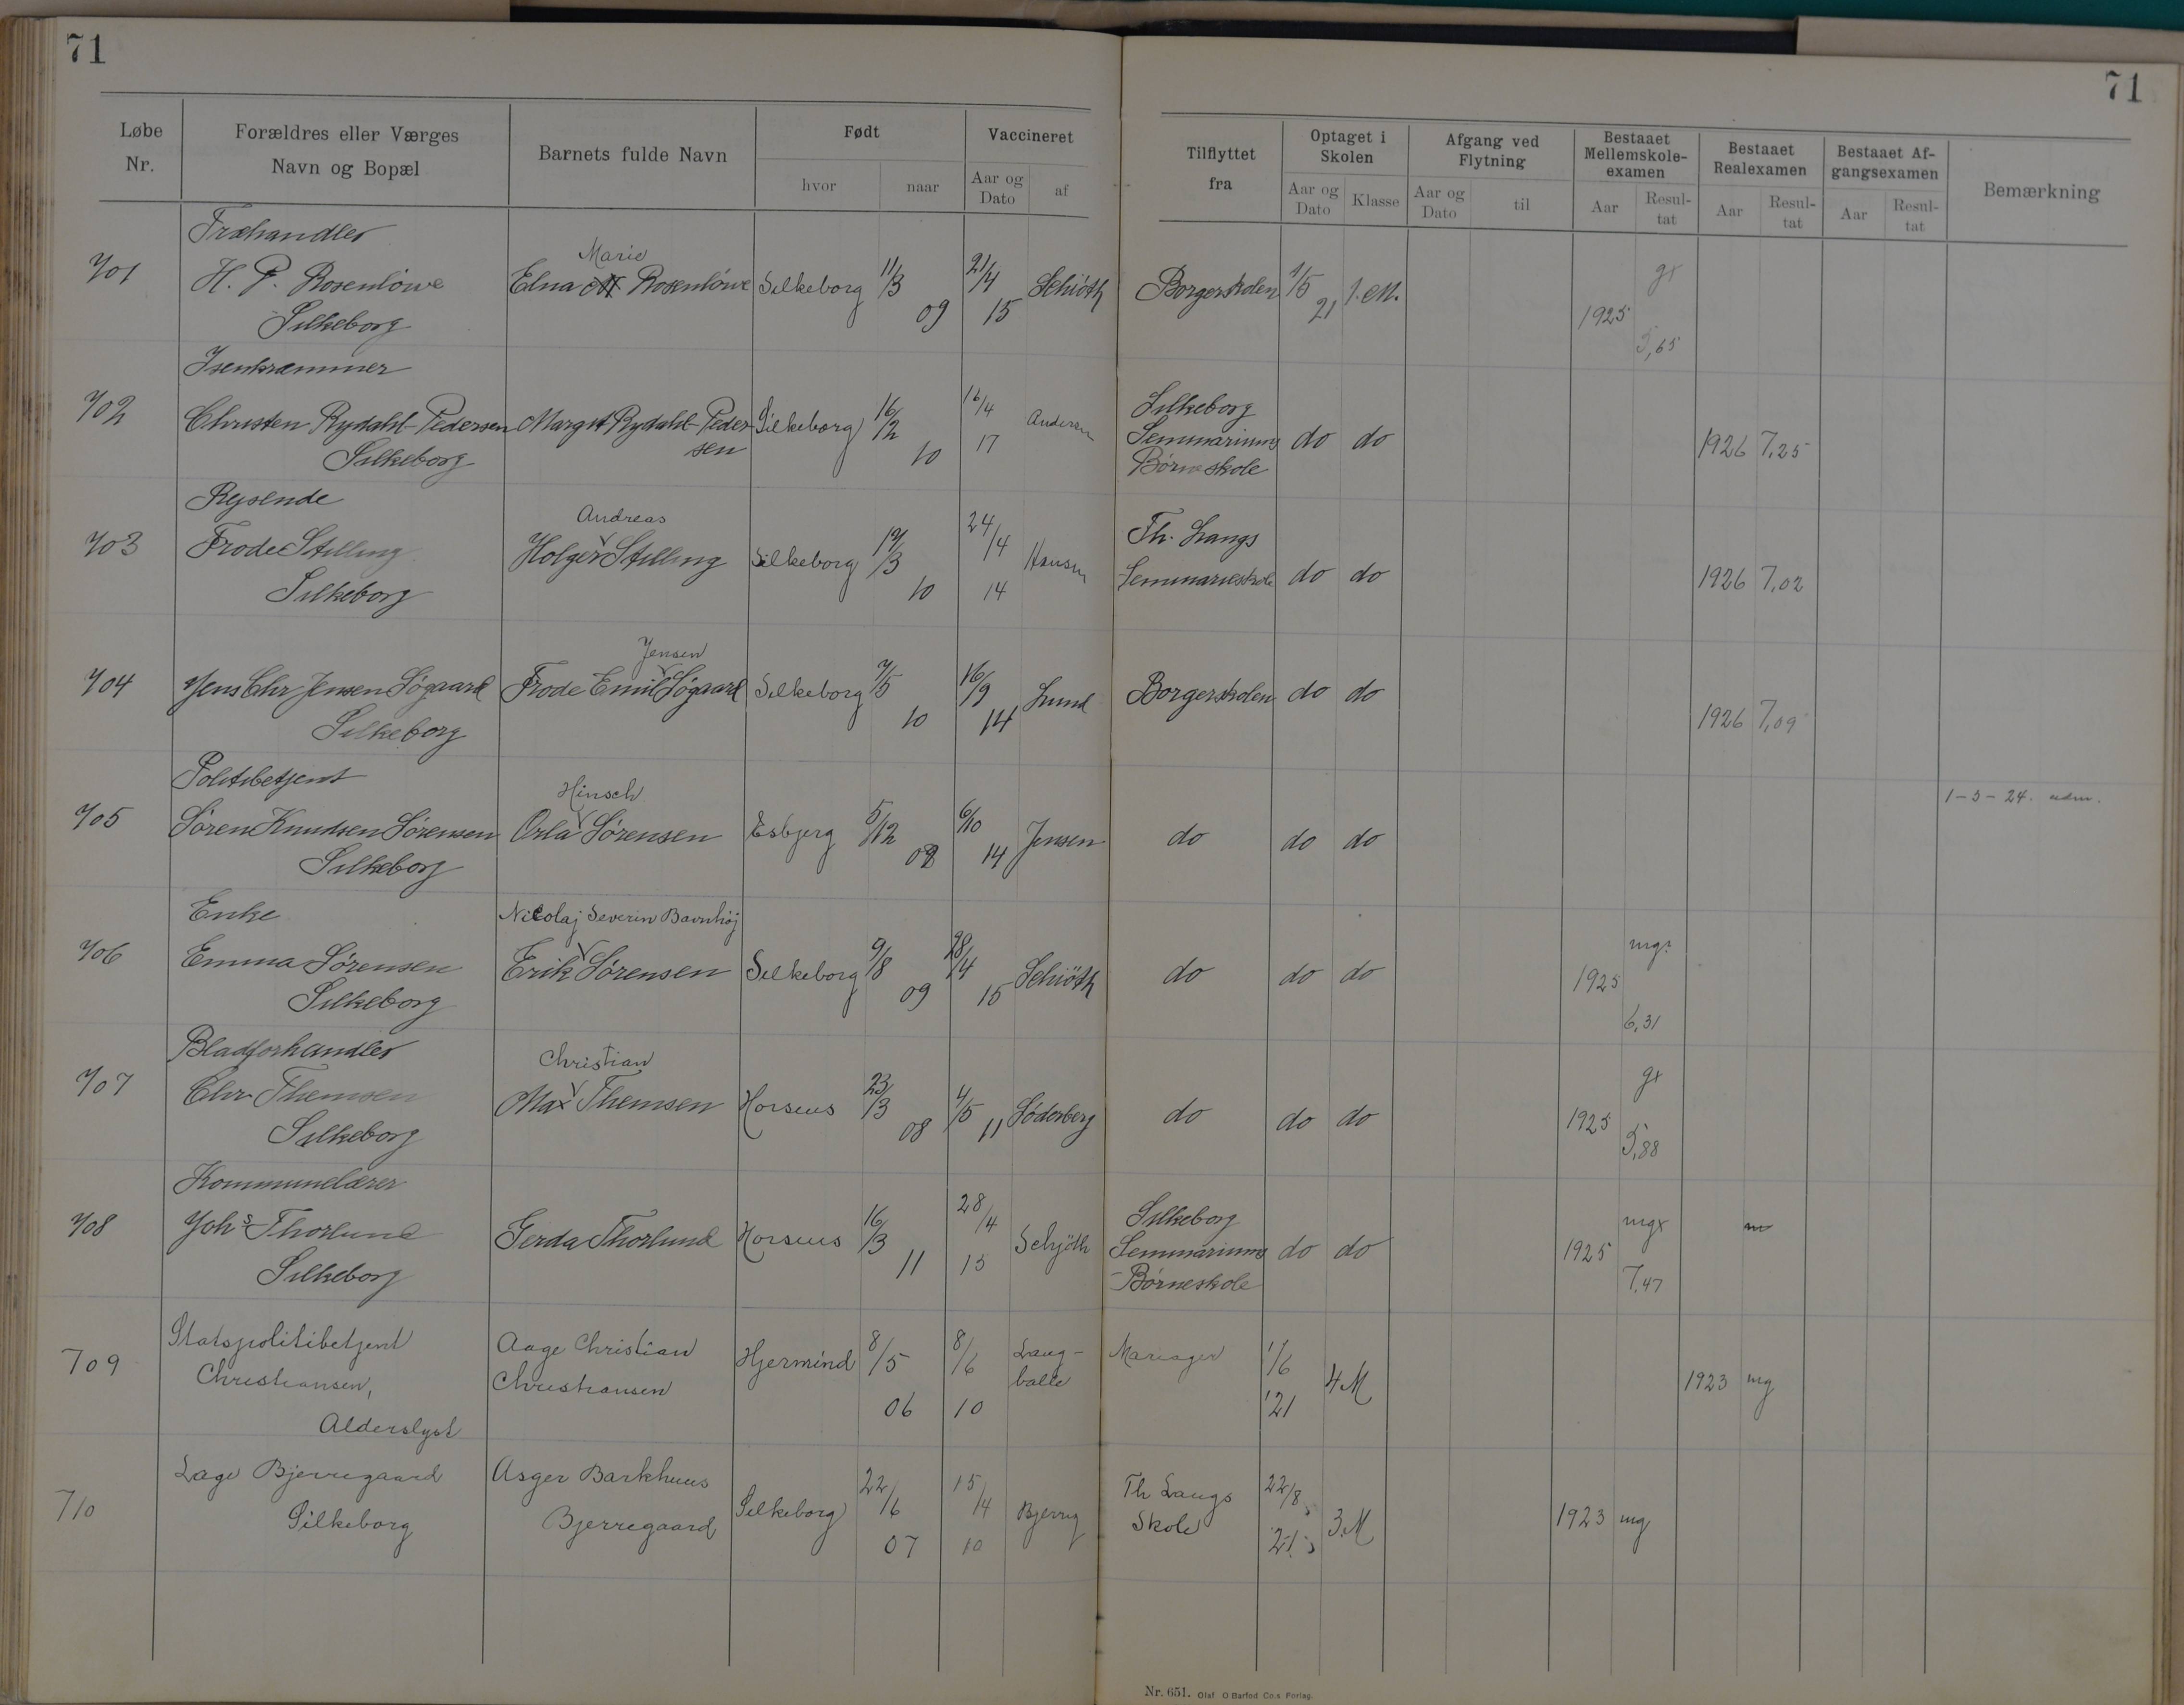 71
71
Løbe Nr.
Forældres eller Værges Navn og Bopæl
Barnets fulde Navn
Født
hvor
naar
Vaccineret
Aar og Dato
af
Tilflyttet fra
Optaget i Skolen
Aar og Dato
Klasse
Afgang ved Flytning
Aar og Dato
til
Bestaaet Mellemskole-examen
Aar
Resul-tat
Bestaaet Realexamen
Aar
Resul-tat
Bestaaet Af-gangsexamen
Aar
Resul-tat
Bemærkning
Træhandler
Marie
701 H. P. Rosenlöwe Elna M Rosenlöwe Silkeborg 11/3 21/4 Schiöth Borgerskolen 1/5 1. M. gx
Silkeborg 09 15 21 1925 5,65
Isenkræmmer
702 Christen Rydahl-Pedersen Margit Rydahl-Peder- Silkeborg 16/2 16/4 Andersen Silkeborg Seminariums do do
Silkeborg sen 10 17 Börneskole 1926 7,25
Rejsende
Andreas
703 Frode Stilling Holger Stilling Silkeborg 19/3 24/4 Hansen Th. Langs Seminarieskole do do
Silkeborg 10 14 1926 7,02
Jensen
704 Jens Chr Jensen Sögaard Frode Emil Sögaard Silkeborg 7/5 16/9 Lund Borgerskolen do do
Silkeborg 10 14 1926 7,09
Politibetjent
Hinsch 1-3-24. udm.
705 Sören Knudsen Sörensen Orla Sörensen Esbjerg 5/12 6/10 Jensen do do do
Silkeborg 08 14
Enke
Nicolaj Severin Bavnhöj
706 Emma Sörensen Erik Sörensen Silkeborg 9/8 28/4 Schiöth do do do mg÷
Silkeborg 09 15 1925 6,31
Bladforhandler
Christian
707 Chr Themsen Max Themsen Horsens 23/3 4/5 Söderberg do do do gx
Silkeborg 08 11 1925 5,88
Kommunelærer
708 Johs Thorlund Gerda Thorlund Horsens 16/3 28/4 Schjöth Silkeborg Seminariums do do mgx
Silkeborg 11 15 -Börneskole 1925 7,47
Statspolitibetjent
709 Christiansen, Aage Christian Christiansen Hjermind 8/5 8/6 Lang-balle Mariager 1/6 4M 1923 mg
Alderslyst 06 10 '21
710 Lage Bjerregaard Asger Barkhuus Silkeborg 22/6 15/4 Bjerrig Th Langs Skole 22/8 3.M 1923 mg
Silkeborg Bjerregaard 07 10 21
Nr. 651. Olaf O. Barfod Co.s Forlag.